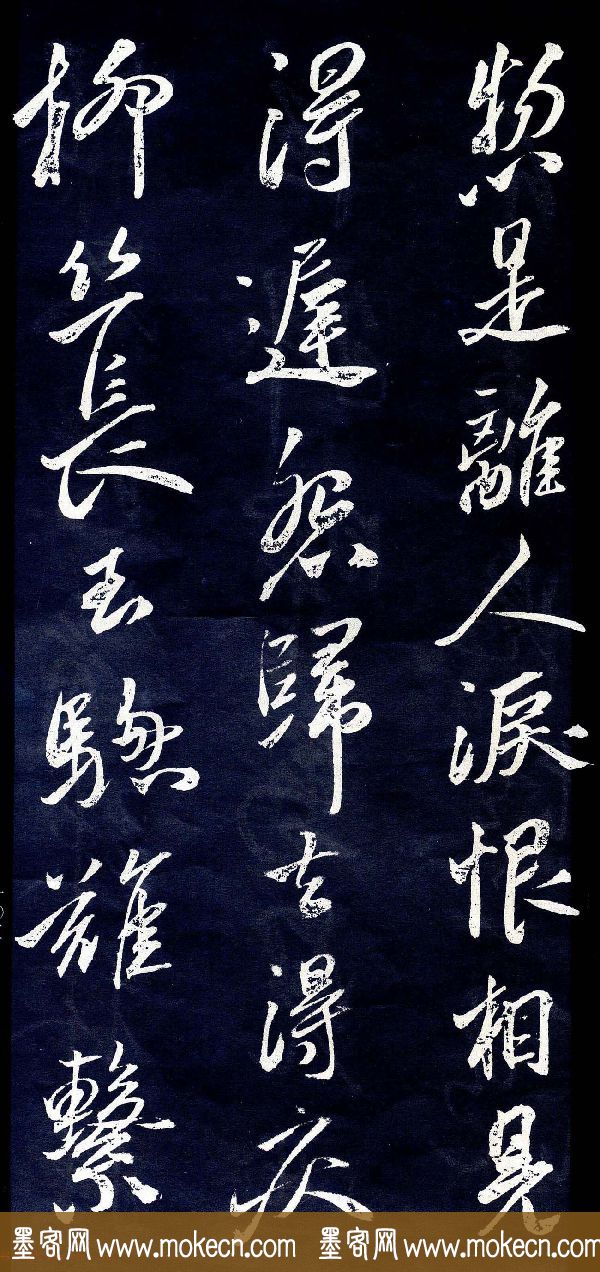 惣是離人淚恨相見
得遲怨歸去得疾
柳丝長玉騘難繫
墨客网 www.mokecn.com 墨客网 www.mokecn.com